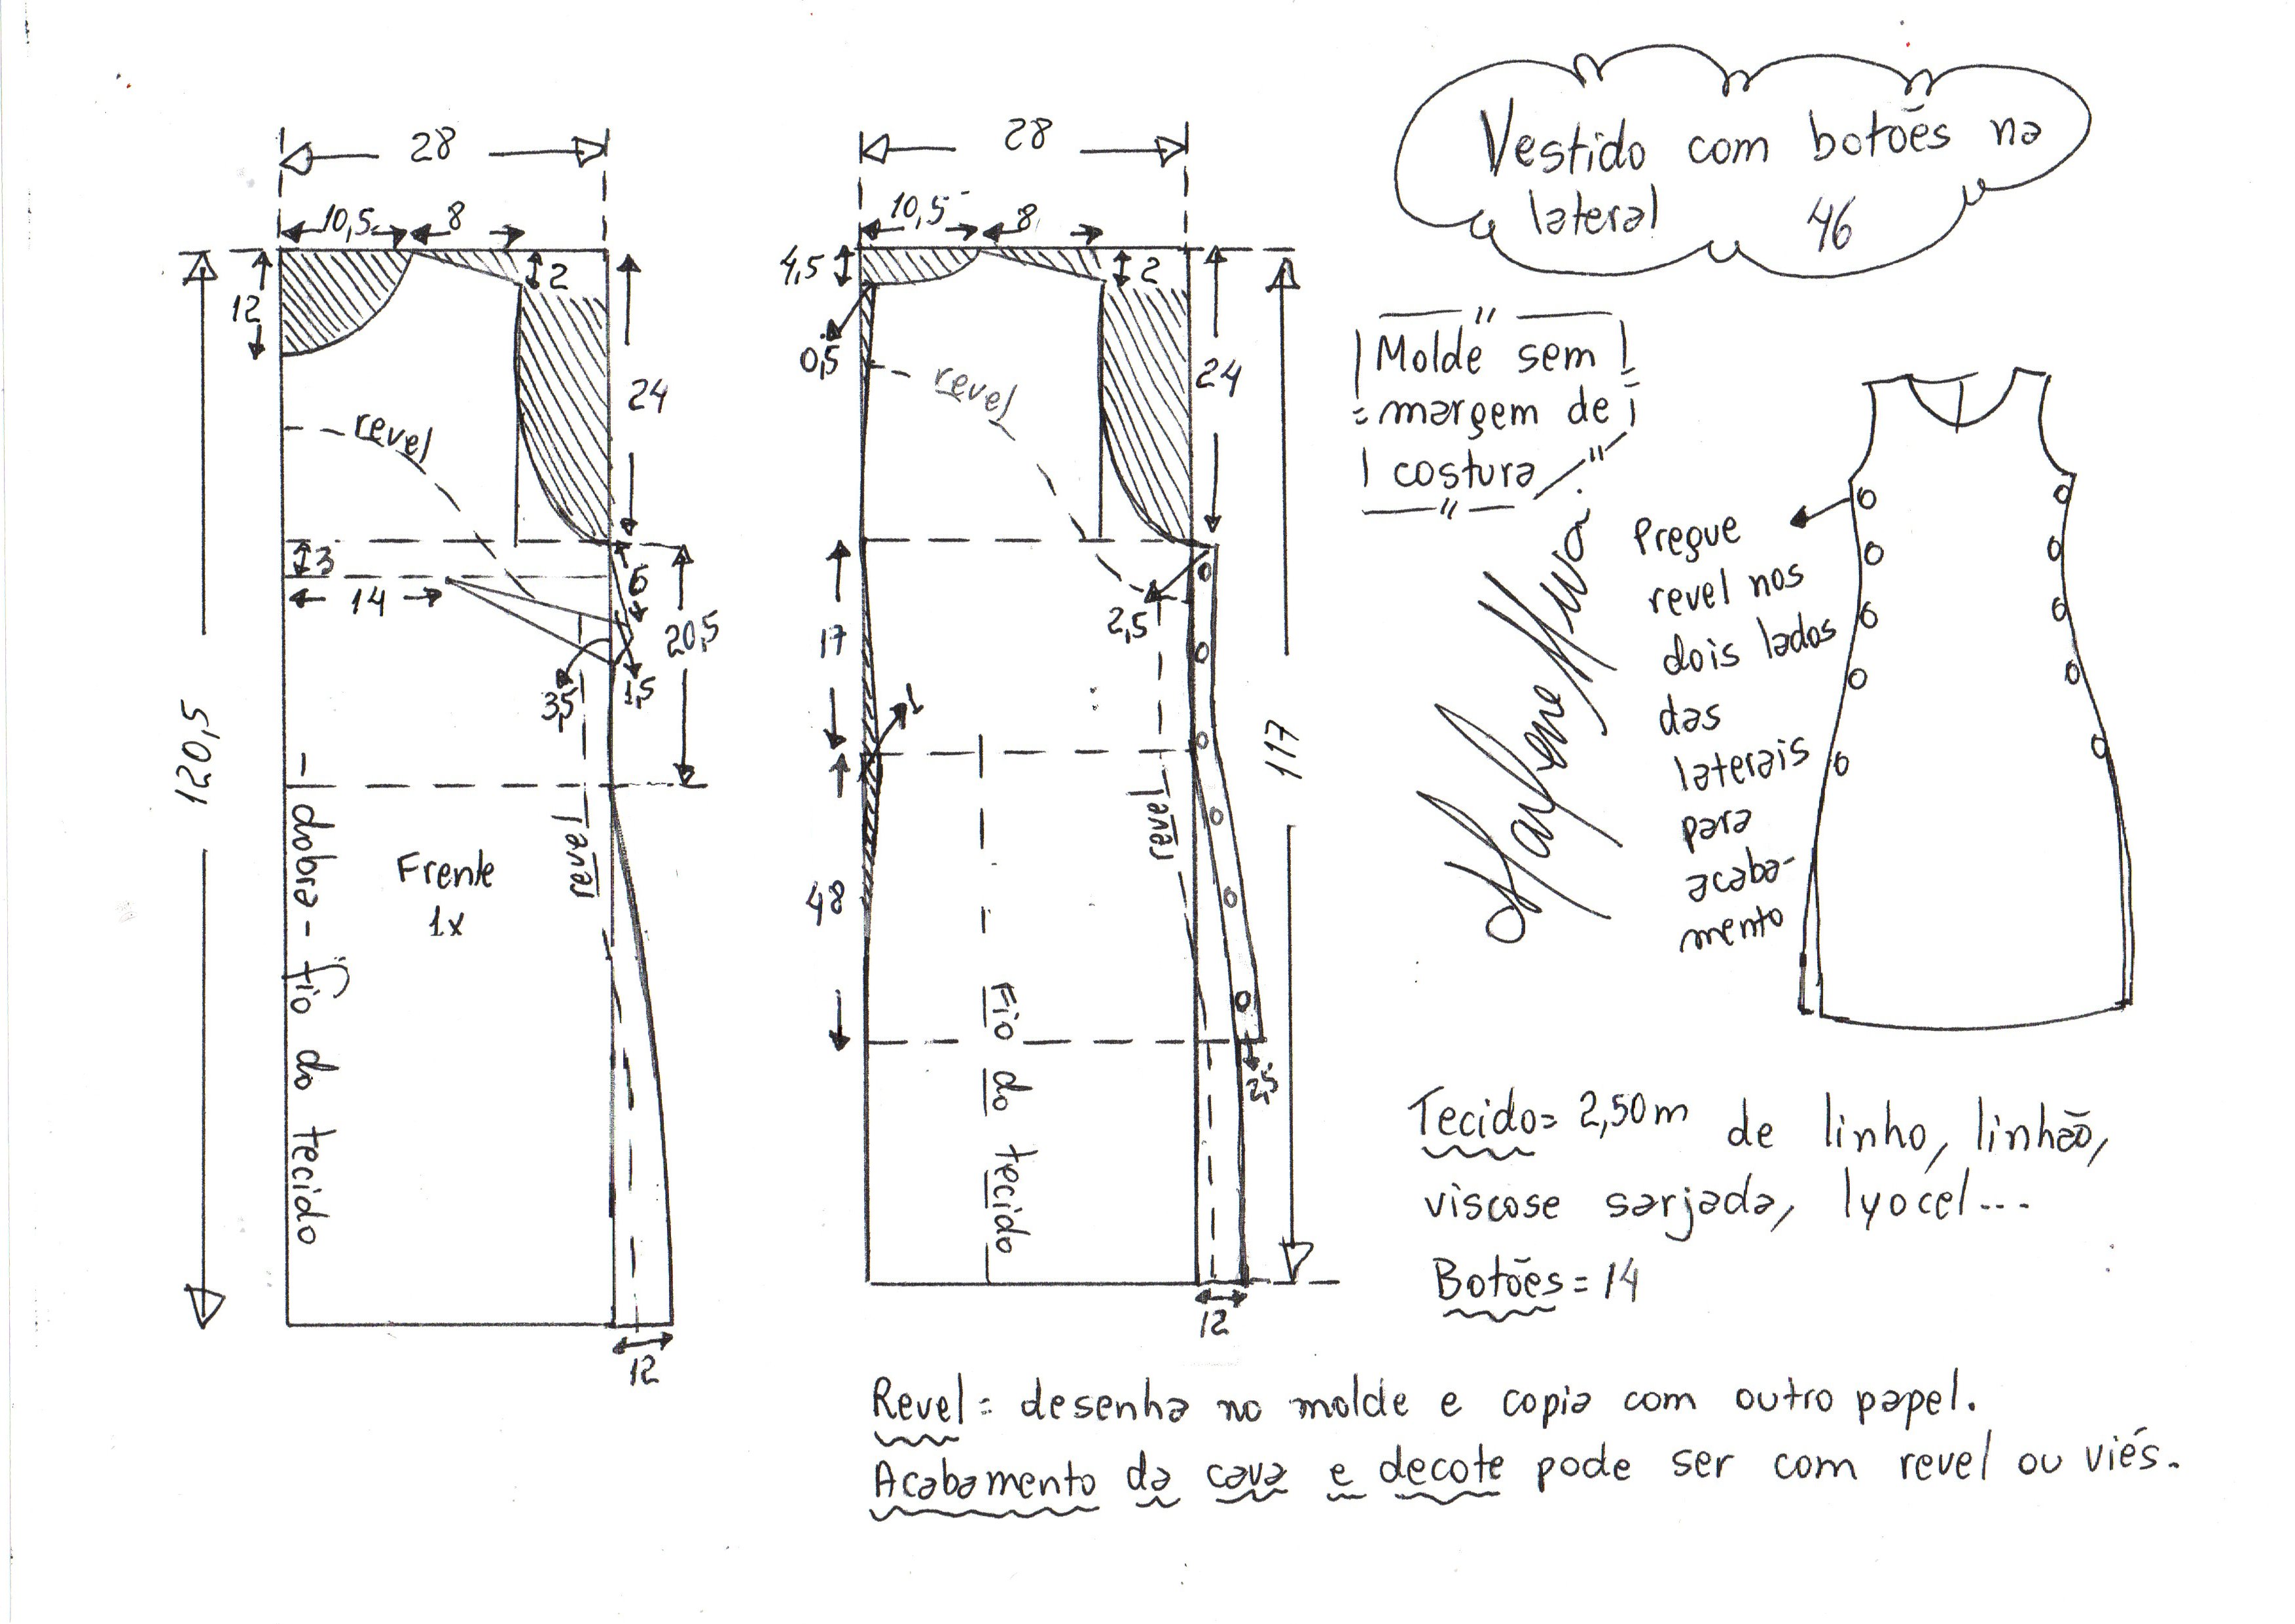 Vestido com botões na
lateral 46
28
10,5 8
12
2
24
revel
3
14
6
20,5
3,5
1,5
120,5
revel
dobra - fio do tecido
Frente
1x
12
28
10,5 8
4,5
2
0,5
revel
24
2,5
17
1
117
revel
48
Fio do tecido
2,5
12
Molde sem
margem de
costura
Pregue
revel nos
dois lados
das
laterais
para
acaba-
mento
Tecido= 2,50m de linho, linhão,
viscose sarjada, lyocel...
Botões = 14
Revel = desenha no molde e copia com outro papel.
Acabamento da cava e decote pode ser com revel ou viés.